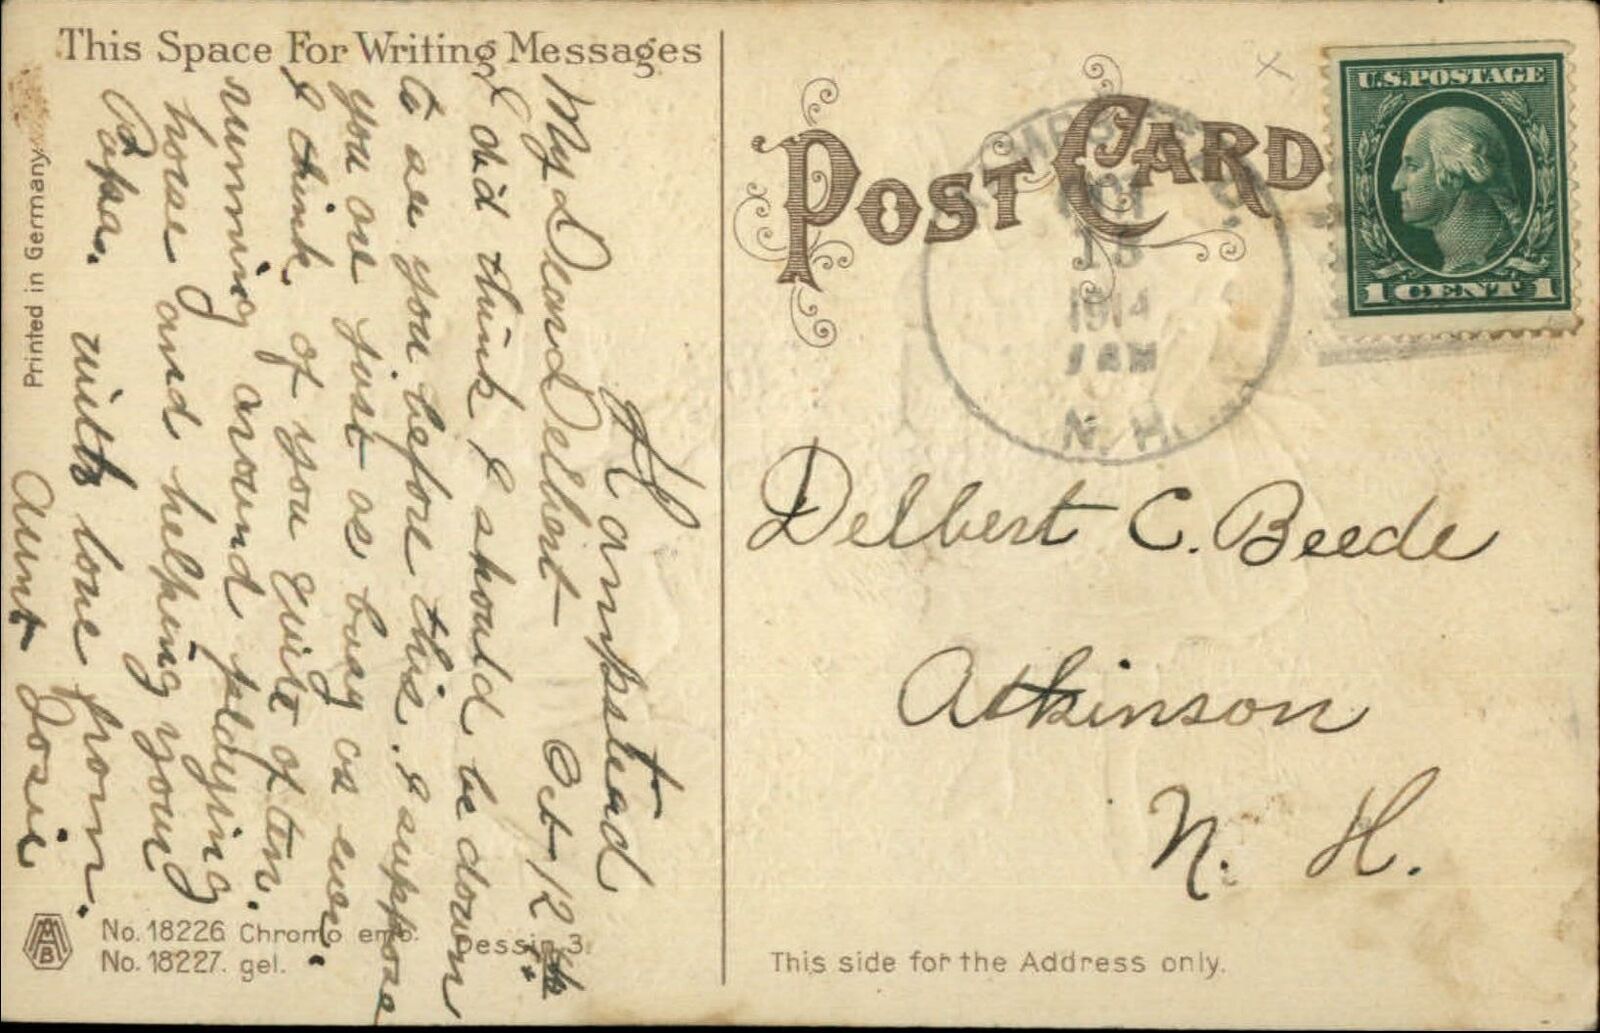 This Space For Writing Messages
Hampstead
Oct 12th
My Dear Delbert
I did think I should be down
to see you before this. I suppose
you are just as busy as ever.
I think of you quite often.
running around playing
house and helping your
Papa. with love from.
Aunt Josie
Printed in Germany.
No. 18226 Chromo emb. Dessin 3.
No. 18227. gel.
MAB
POST CARD
U.S. POSTAGE
1 CENT 1
OCT
13
1914
AM
N.H.
Delbert C. Beede
Atkinson
N. H.
This side for the Address only.